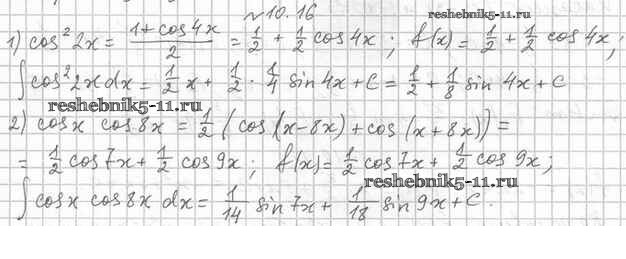 №10.16
reshebnik5-11.ru
1) cos²2x = (1+cos4x)/2 = 1/2 + 1/2 cos 4x ; f(x) = 1/2 + 1/2 cos 4x ;
∫cos²2x dx = 1/2 x + 1/2 · 1/4 sin 4x + C = 1/2 + 1/8 sin 4x + C
reshebnik5-11.ru
2) cosx cos8x = 1/2 (cos(x-8x) + cos(x+8x)) =
= 1/2 cos7x + 1/2 cos 9x ; f(x) = 1/2 cos7x + 1/2 cos 9x ;
reshebnik5-11.ru
∫cosx cos8x dx = 1/14 sin 7x + 1/18 sin 9x + C.